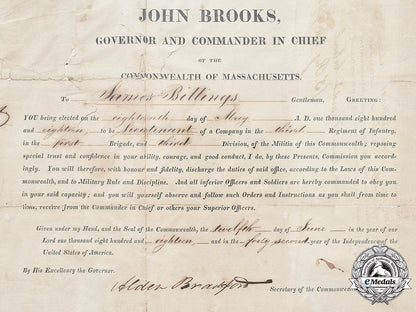 JOHN BROOKS,
GOVERNOR AND COMMANDER IN CHIEF
OF THE
COMMONWEALTH OF MASSACHUSETTS.
To James Billings Gentleman, GREETING:
YOU being elected on the eighteenth day of May A. D. one thousand eight hundred
and eighteen, to be Lieutenant of a Company in the third Regiment of Infantry,
in the first Brigade, and third Division, of the Militia of this Commonwealth; reposing
special trust and confidence in your ability, courage, and good conduct, I do, by these Presents, Commission you accord-
ingly. You will therefore, with honour and fidelity, discharge the duties of said office, according to the Laws of this Com-
monwealth, and to Military Rule and Discipline. And all inferior Officers and Soldiers are hereby commanded to obey you
in your said capacity; and you will yourself observe and follow such Orders and Instructions as you shall from time to
time, receive from the Commander in Chief or others your Superior Officers.
Given under my Hand, and the Seal of the Commonwealth, the Twelfth day of June in the year of our
Lord one thousand eight hundred and eighteen and in the forty second year of the Independence of the
United States of America.
By His Excellency the Governor.
Alden Bradford Secretary of the Commonwealth
eMedals